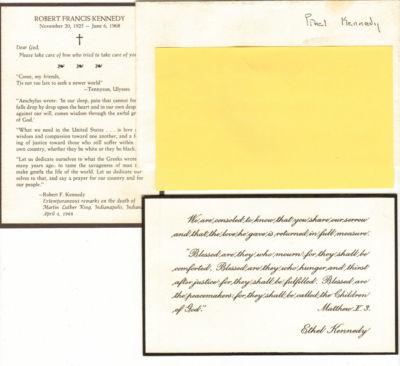 ROBERT FRANCIS KENNEDY
November 20, 1925 — June 6, 1968
Dear God,
Please take care of how who tried to take care of you
"Come, my friends,
'Tis not too late to seek a newer world"
—Tennyson, Ulysses
"Aeschylus wrote: 'In our deep, pain that cannot for
falls drop by drop upon the heart and in our own desp
against our will, comes wisdom through the awful gr
of God.'
"What we need in the United States . . . is love
wisdom and compassion toward one another, and a f
ing of justice toward those who still suffer within
own country, whether they be white or they be black.
"Let us dedicate ourselves to what the Greeks wrote
many years ago: to tame the savageness of man
make gentle the life of the world. Let us dedicate our
selves to that, and say a prayer for our country and for
our people."
—Robert F. Kennedy
Extemporaneous remarks on the death of
Martin Luther King, Indianapolis, Indian
April 4, 1968
Kennedy
We are consoled to know that you share our sorrow
and that the love he gave is returned in full measure.
"Blessed are they who mourn: for they shall be
comforted. Blessed are they who hunger and thirst
after justice for they shall be fulfilled. Blessed are
the peacemakers for they shall be called the Children
of God." Matthew V. 3.
Ethel Kennedy